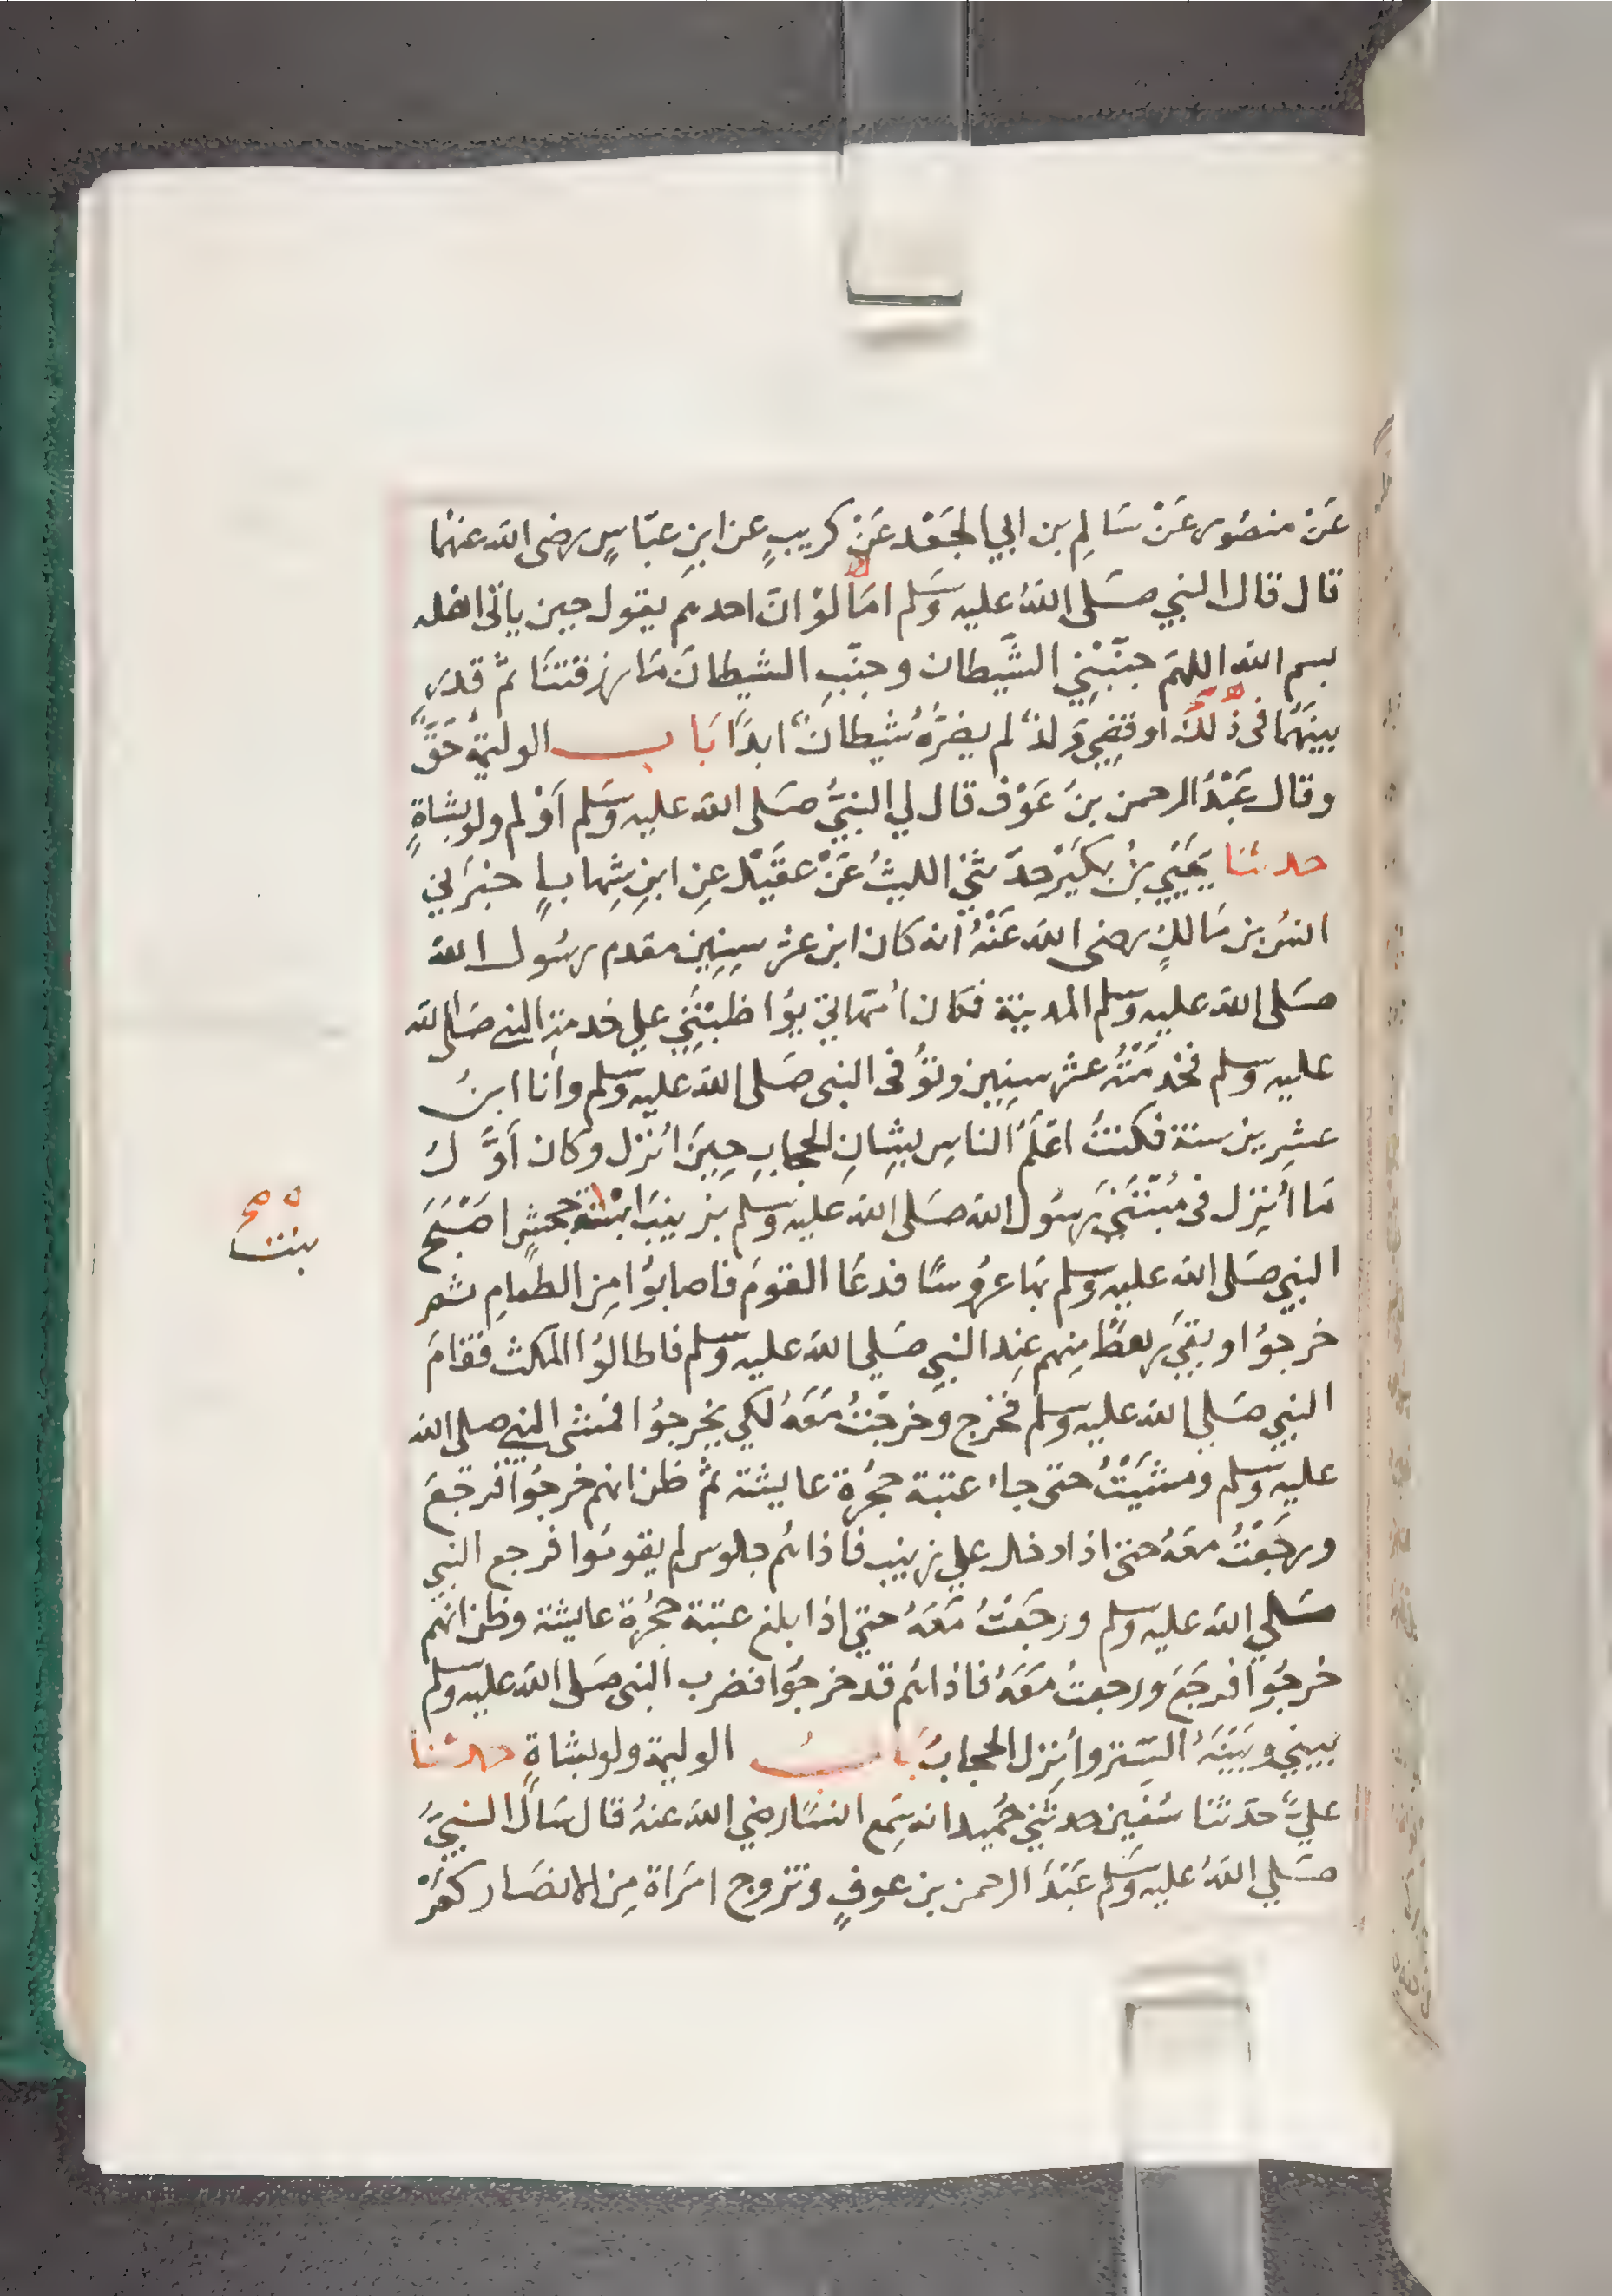 عَنْ منصُور عَنْ سَالِمِ بن ابي الجَعْد عَنْ كريبٍ عن ابنِ عبّاسٍ رضى الله عنهما
قال قال النبي صَلى اللهُ عليه وَسَلم امَا لوْ انّ احدهم يقول حين ياتى اهله
بسم الله اللهمّ جنّبْنِي الشَّيطان وجنّبِ الشيطانَ مَا رزقتنَا ثمّ قدرَ
بينَهُمَا فى ذلكَ او قضِيَ وَلدٌ لم يضرَّهُ شيطانٌ ابدًا بَاب الوليمةُ حَقٌّ
وقال عَبْدُ الرحمن بنُ عَوْف قال لي النبيُّ صَلى الله عليه وَسَلم أوْلم ولو بشاةٍ
حدثنا يَحْيَي بنُ بكَيْر حدّثني الليثُ عَنْ عقَيْل عنِ ابنِ شِهابٍ اخبرَني
انسُ بن مَالكٍ رضى الله عَنْهُ أنه كان ابن عشر سِنِين مقدم رسُول الله
صَلى الله عليه وَسلم المدينة فكان أمّهاتي يوُاظبْنَنِي علي خدمةِ النبي صَلى الله
عليه وَسلم فخدَمْتُه عشر سِنِين وتوُفى النبى صَلى الله عليه وَسلم وأنا ابنُ
عشرِين سنة فكنتُ اعْلَمُ الناسِ بشانِ الحجابِ حِينَ أُنزل وكان أوَّلُ
مَا أُنزِل فى مُبْتَنَى رسُول الله صَلى الله عليه وَسلم بزينبَ ابنةِ جحشٍ اصْبَحَ
النبي صَلى الله عليه وَسلم بهَا عرُوسًا فدعَا القومَ فاصابوُا مِن الطعامِ ثم
خرجوُا وبقيَ رهطٌ مِنهم عِند النبي صَلي الله عليه وَسلم فاطالوُا المكث فقامَ
النبي صَلي الله عليه وسلم فخرج وخرجْتُ مَعَهُ لكي يخرجوُا فمشى النبي صلى الله
عليه وَسلم ومشَيْتُ حتى جاء عتبة حجُرة عايشة ثمّ ظن انهم خرجوُا فرجَعَ
ورجَعْتُ معَهُ حتى اذا دخل علي زينب فاذا هُم جلوس لم يقومُوا فرجع النبي
صَلي الله عليه وسلم ورجَعْتُ مَعَهُ حتي اذا بلغ عتبة حجُرة عايشة وظن انهم
خرجُوا فرجَعَ ورجعتُ مَعَهُ فاذا هُم قد خرجوُا فضرب النبى صَلى الله عليه وسلم
بيني وبَيْنَهُ السِّتر وأُنزل الحجابُ بابُ الوليمة ولو بشاةٍ حدثنا
عليٌّ حدّثنا سُفين حدثني حُميد انه سَمِع انسًا رضي الله عنهُ قال سَالَ النبيُّ
صَلي اللهُ عليه وَسَلم عَبْدَ الرحمن بن عوفٍ وتزوج امرَاة مِن الانصَار كمْ
بنت
صح